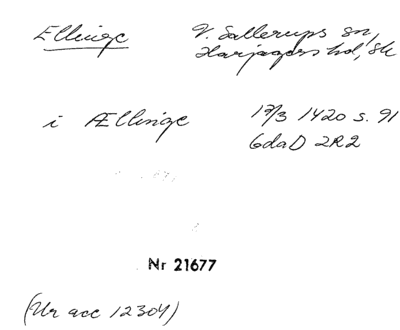 Ellinge V. Sallerups sn,
Harjagers hd, Sk
i Ællinge 17/3 1420 s. 91
6daD 2R2
Nr 21677
(Ur acc 12304)